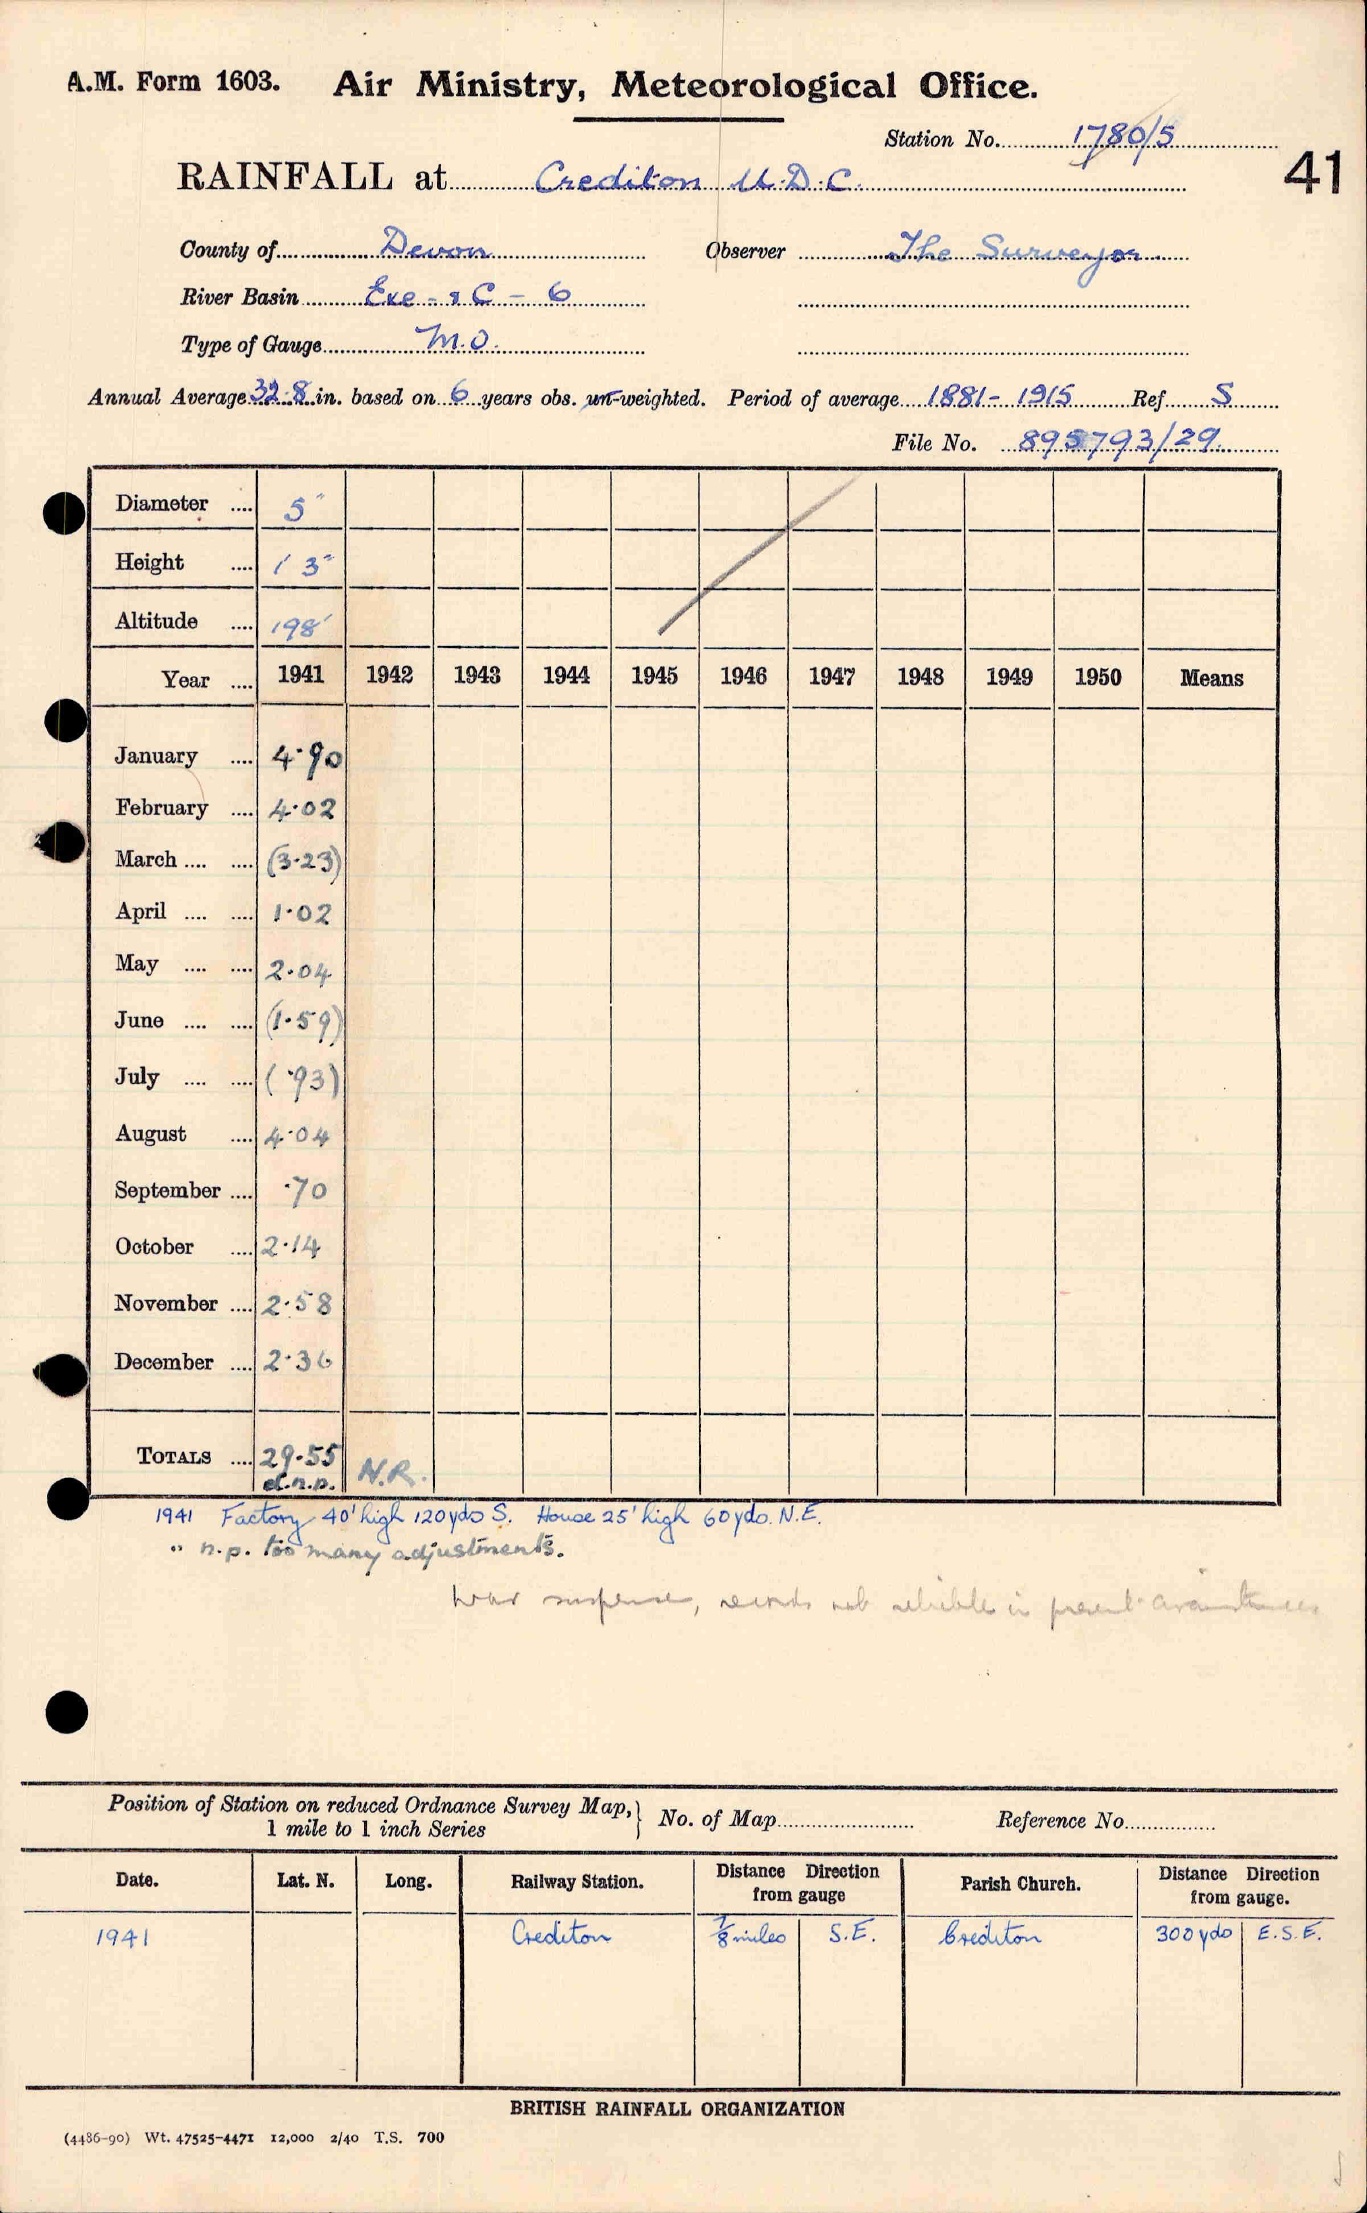 A.M. Form 1603. Air Ministry, Meteorological Office.
Station No. 1780/5
41
RAINFALL at Crediton U.D.C.
County of Devon Observer The Surveyor
River Basin Exe - & C - 6
Type of Gauge M.O.
Annual Average 32.8 in. based on 6 years obs. un-weighted. Period of average 1881-1915 Ref S
File No. 895793/29
Diameter .... 5"
Height .... 1' 3"
Altitude .... 198'
Year .... 1941 1942 1943 1944 1945 1946 1947 1948 1949 1950 Means
January .... 4.90
February .... 4.02
March .... .... (3.23)
April .... .... 1.02
May .... .... 2.04
June .... .... (1.59)
July .... .... (.93)
August .... 4.04
September .... .70
October .... 2.14
November .... 2.58
December .... 2.36
TOTALS .... 29.55 N.R.
d.n.p.
1941 Factory 40' high 120yds S. House 25' high 60yds. N.E.
" n.p. too many adjustments.
War suspense, records not reliable in present circumstances
Position of Station on reduced Ordnance Survey Map, } No. of Map Reference No.
1 mile to 1 inch Series
Date. Lat. N. Long. Railway Station. Distance from gauge Direction Parish Church. Distance from gauge. Direction
1941 Crediton 7/8 miles S.E. Crediton 300 yds E.S.E.
BRITISH RAINFALL ORGANIZATION
(4486-90) Wt. 47525-4471 12,000 2/40 T.S. 700